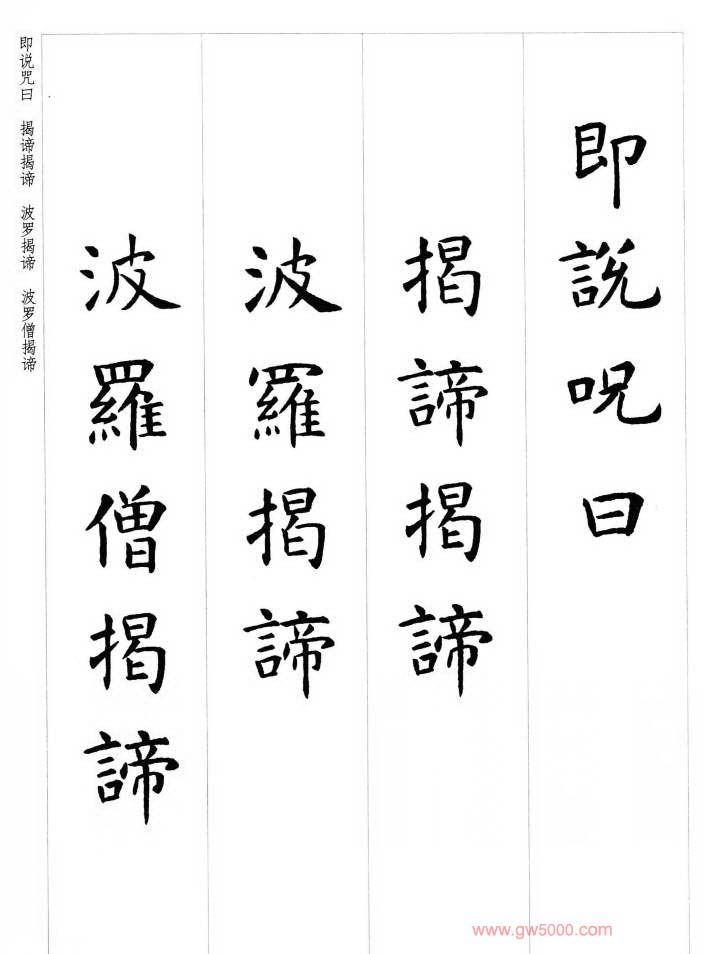 即說呪曰
揭諦揭諦
波羅揭諦
波羅僧揭諦
即说咒曰 揭谛揭谛 波罗揭谛 波罗僧揭谛
www.gw5000.com